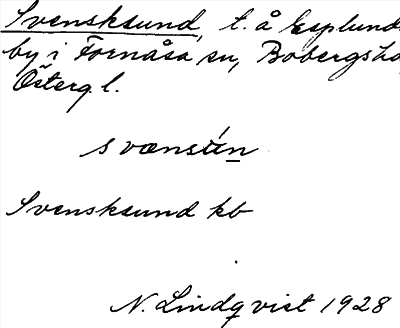 Svensksund, t. å Esplund
by i Fornåsa sn, Bobergs
Österg. l.
svænsún
Svensksund kb
N. Lindqvist 1928